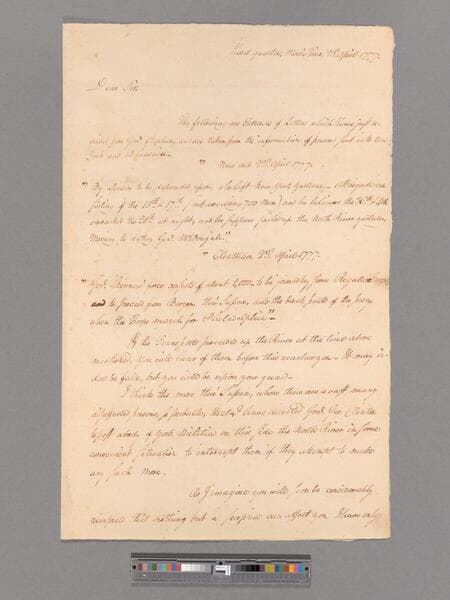 Head quarters, Morris Town 23d April 1777.
Dear Sir,
The following are Extracts of Letters which I have just re
ceived from Genl Stephen, and are taken from the information of persons just out of New
York and Brunswick
" New 22d April 1777.
"By a person to be depended upon, who left New York Yesterday — A Brigade con
sisting of the 15th 17th & not exceeding 700 Men) and he believes the
embarked the 20th at night, and he supposes sailed up the North River yesterday
Morning to destroy Genl McDougall."
" Chatham 23d April 1777.
"Genl Skinners' force consists of about 2000 — to be joined by some Regulars
and to proceed from Bergen thro' Sussex, and the back parts of the Jersey
when the Enemy march for Philadelphia" —
If the Transports proceeded up the River at the time above
mentioned, you will hear of them before this reaches you — It may in
deed be false, but you will be upon your guard —
I think the move thro' Sussex, where there are a vast many
disaffected persons, so probable, that I have directed Genl Geo. Clinton
to post a body of York Militia on this side the North River in some
convenient situation to intercept them if they attempt to make
any such move.
As I imagine you will soon be considerably
reinforced that nothing but a surprise can affect you I have only